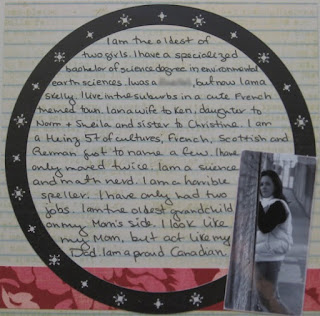 I am the oldest of
two girls. I have a specialized
bachelor of science degree in environmental
earth sciences. I was a , but now I am a
Skelly. I live in the suburbs in a cute French
themed town. I am a wife to Ken, daughter to
Norm + Sheila and sister to Christine. I am
a Heinz 57 of cultures, French, Scottish and
German just to name a few. I have
only moved twice. I am a science
and math nerd. I am a horrible
speller. I have only had two
jobs. I am the oldest grandchild
on my Mom's side. I look like
my Mom, but act like my
Dad. I am a proud Canadian.